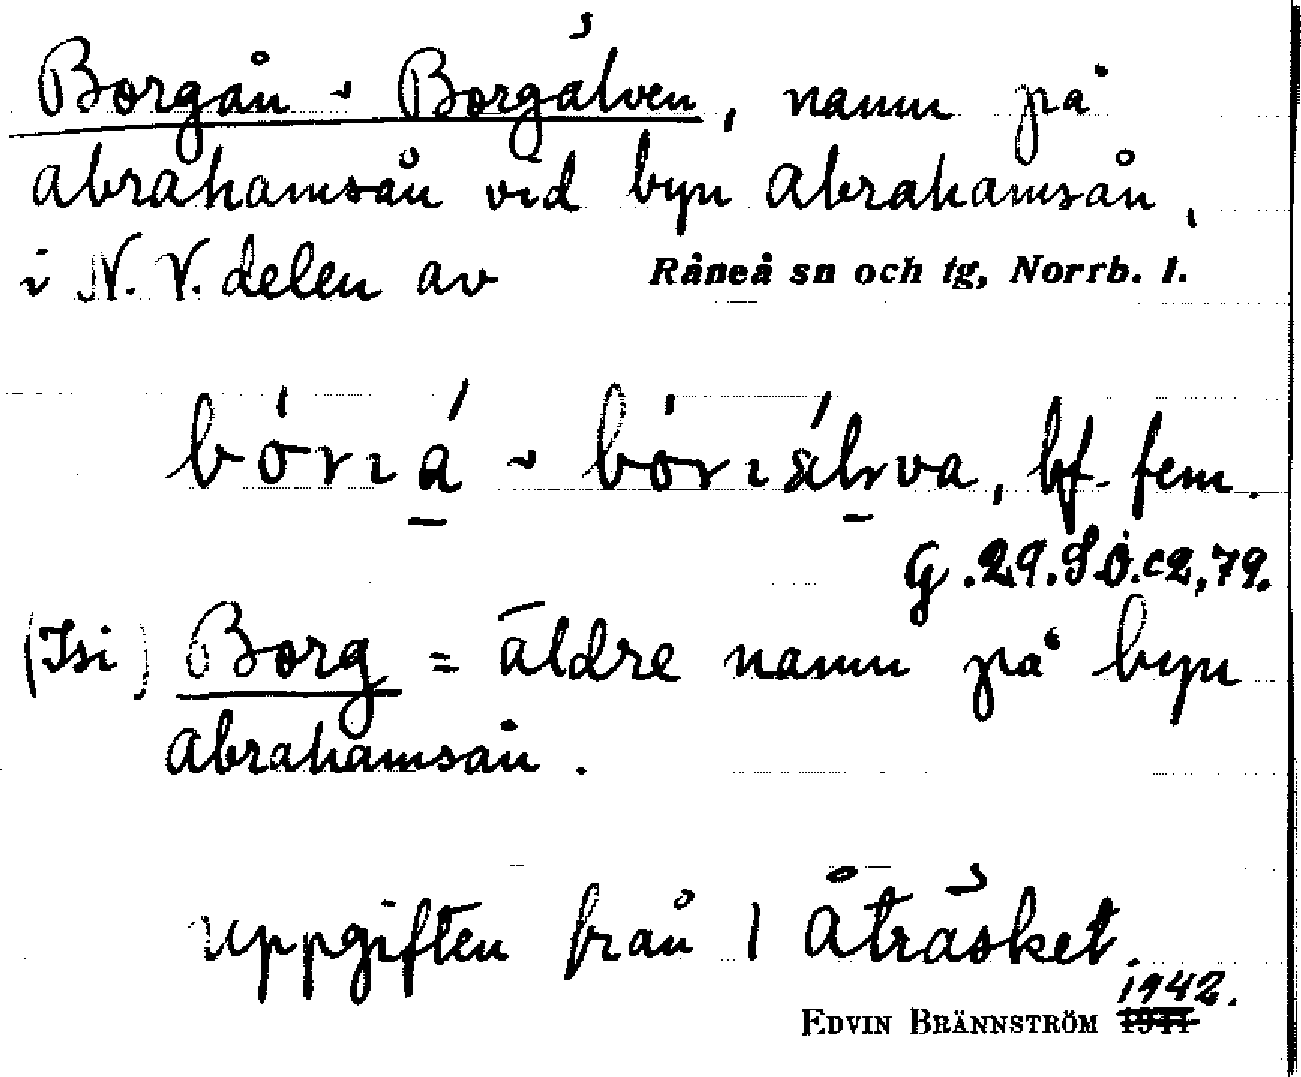 Borgån ~ Borgälven, namn på
Abrahamsån vid byn Abrahamsån,
i N.V. delen av Råneå sn och tg, Norrb. l.
bórıá ~ bórıälva, bf. fem.
G. 29. S.Ö. c2, 79.
(Isi) Borg = äldre namn på byn
Abrahamsån.
Uppgiften från 1 Åträsket.
1942.
EDVIN BRÄNNSTRÖM 1941